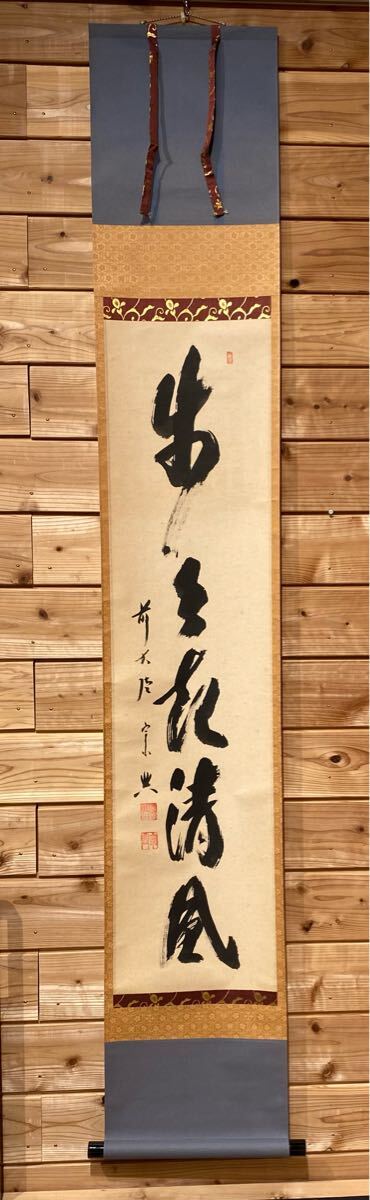 歩々起清風
前大徳宗典